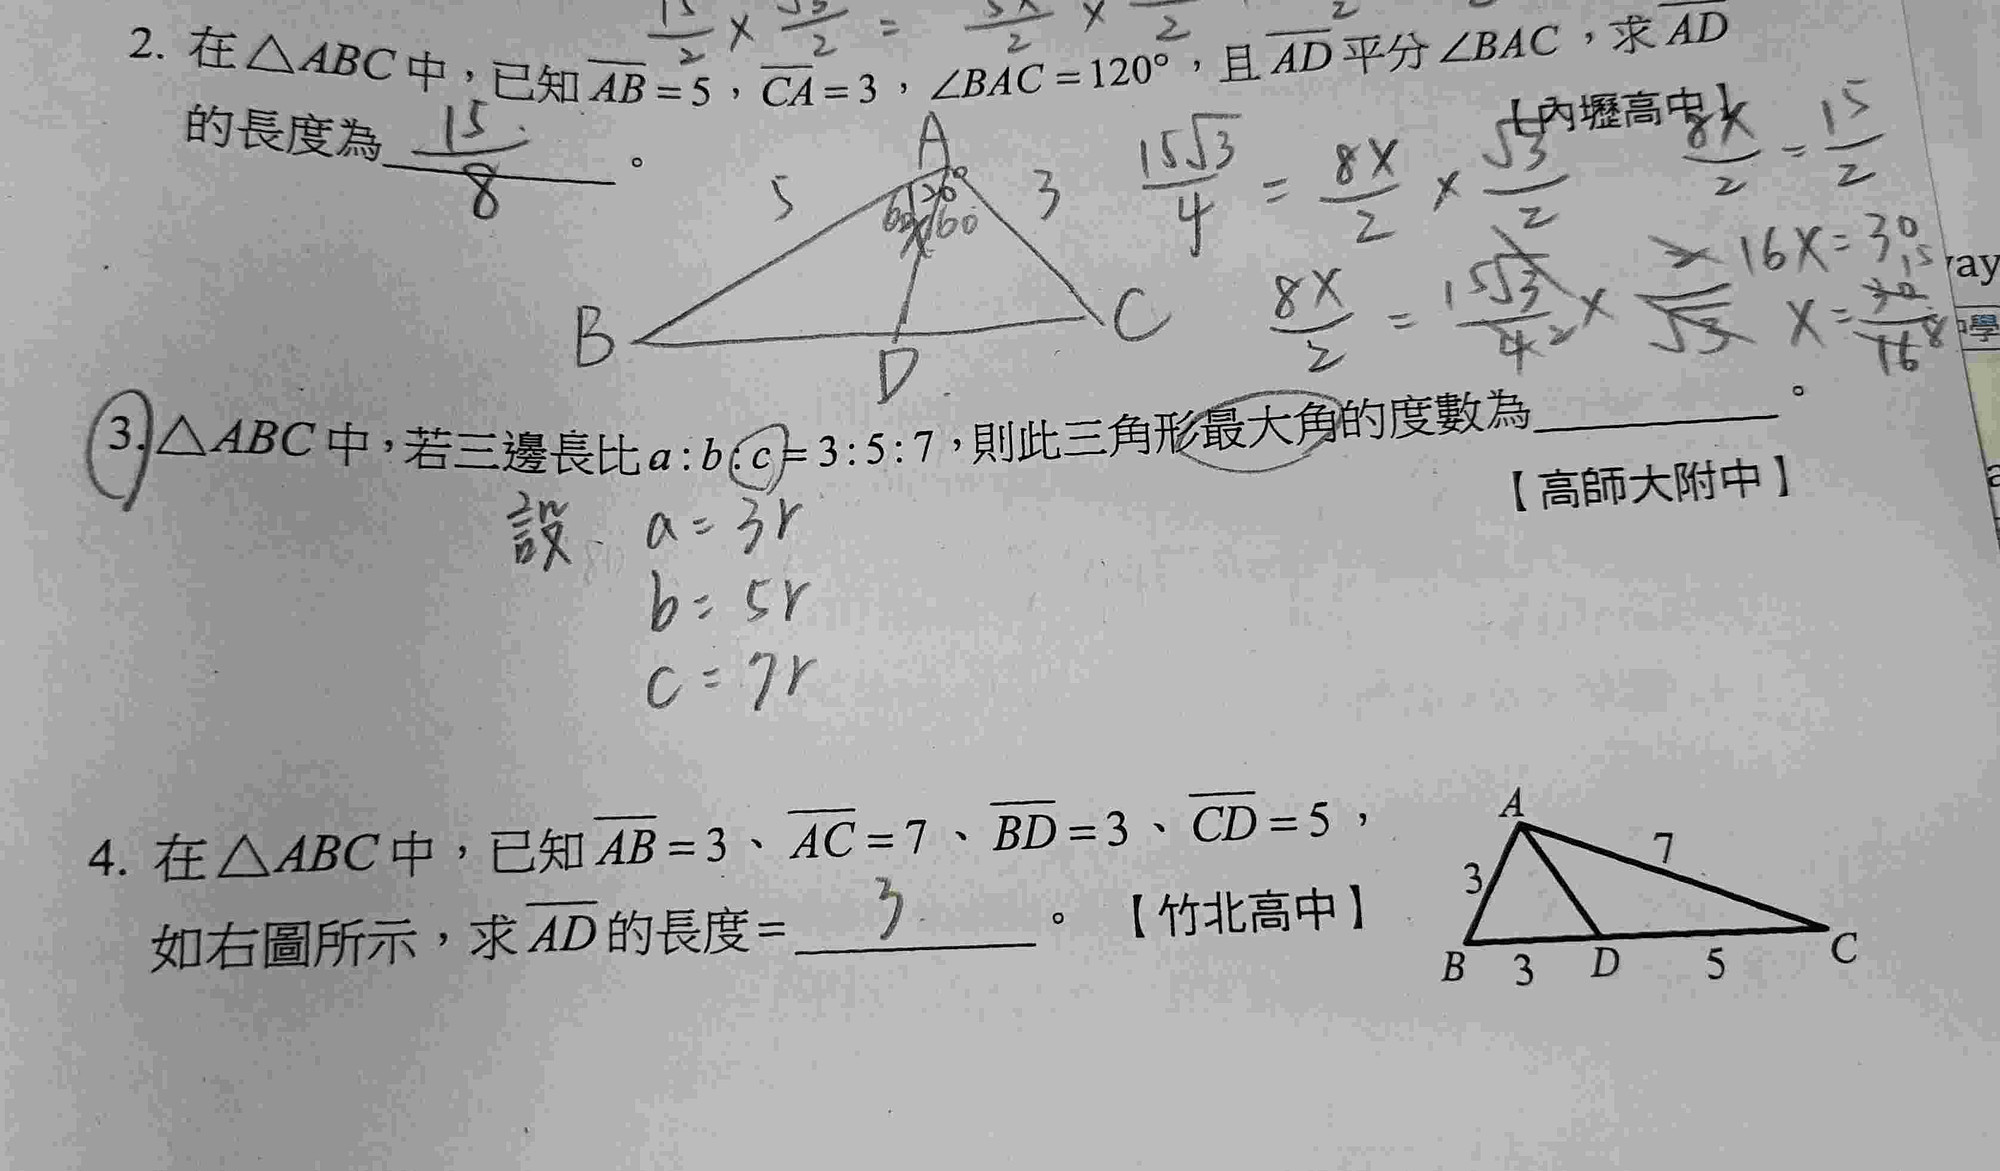 15/2 × √3/2 = 5x/2 ×
2. 在△ABC中，已知AB=5，CA=3，∠BAC=120°，且AD平分∠BAC，求AD
的長度為 15/8 。
【內壢高中】
A
5
120°
3
60
x
60
B
D
C
15√3/4 = 8x/2 × √3/2
8x/2 = 15√3/4 × 2/√3
8x/2 = 15/2
16x=30
x=30/16
15
8
2
ay
學
3. △ABC中，若三邊長比a:b:c=3:5:7，則此三角形最大角的度數為 。
【高師大附中】
設 a=3r
b=5r
c=7r
4. 在△ABC中，已知AB=3、AC=7、BD=3、CD=5，
如右圖所示，求AD的長度= 3 。【竹北高中】
A
3
7
B 3 D 5 C